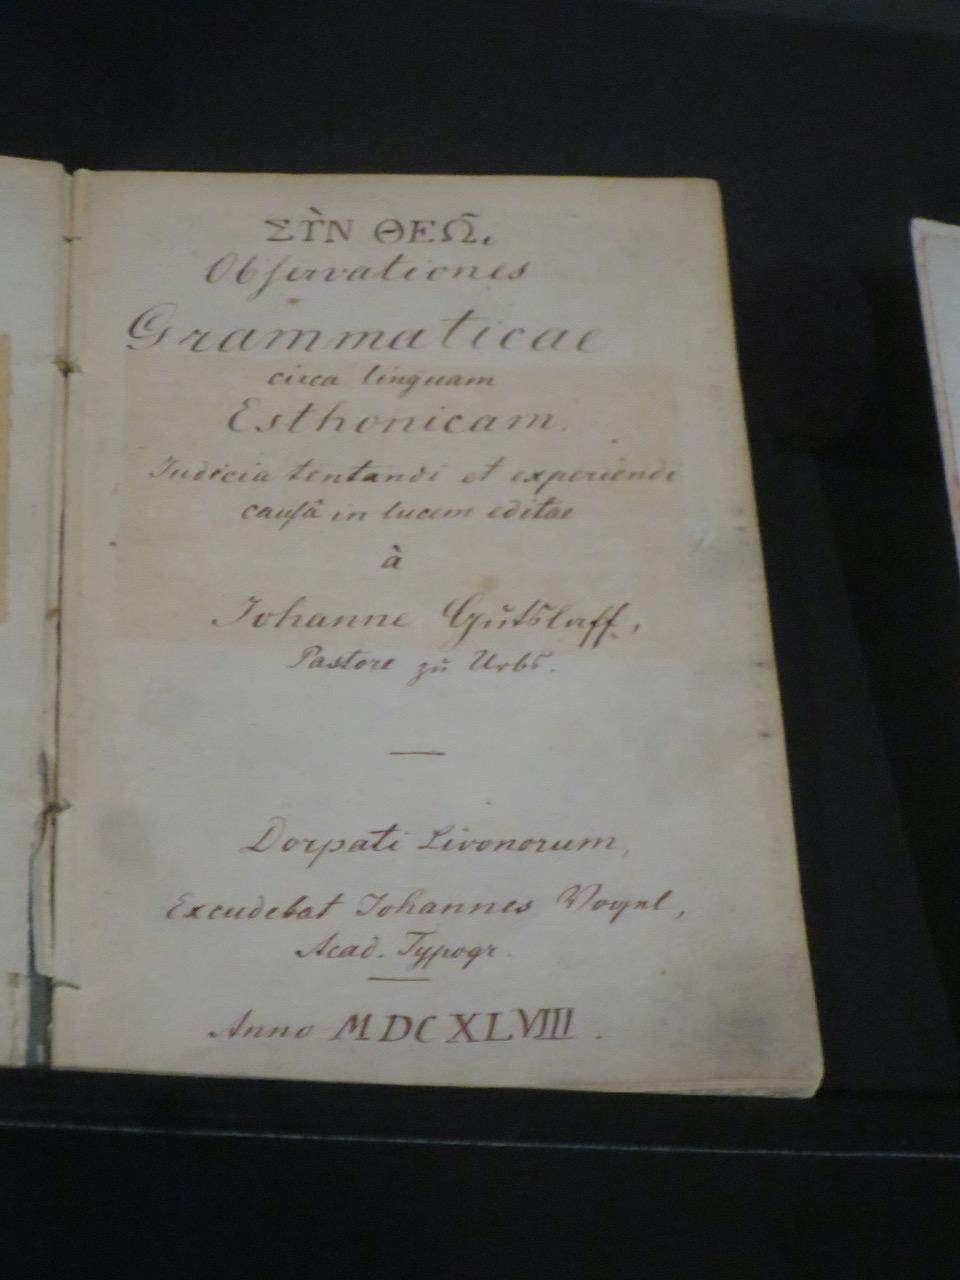 ΣῪΝ ΘΕΩ͂.
Observationes
Grammaticae
circa linguam
Esthonicam.
Iudicia tentandi et experiendi
causâ in lucem editae
à
Iohanne Gŭtslaff,
Pastore zŭ Urbs.
Dorpati Livonorum,
Excudebat Iohannes Vogel,
Acad. Typogr.
Anno MDCXLVIII.